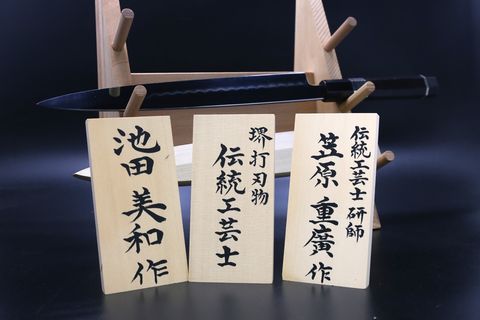 池田美和作
堺打刃物
伝統工芸士
伝統工芸士 研師
笠原重廣作